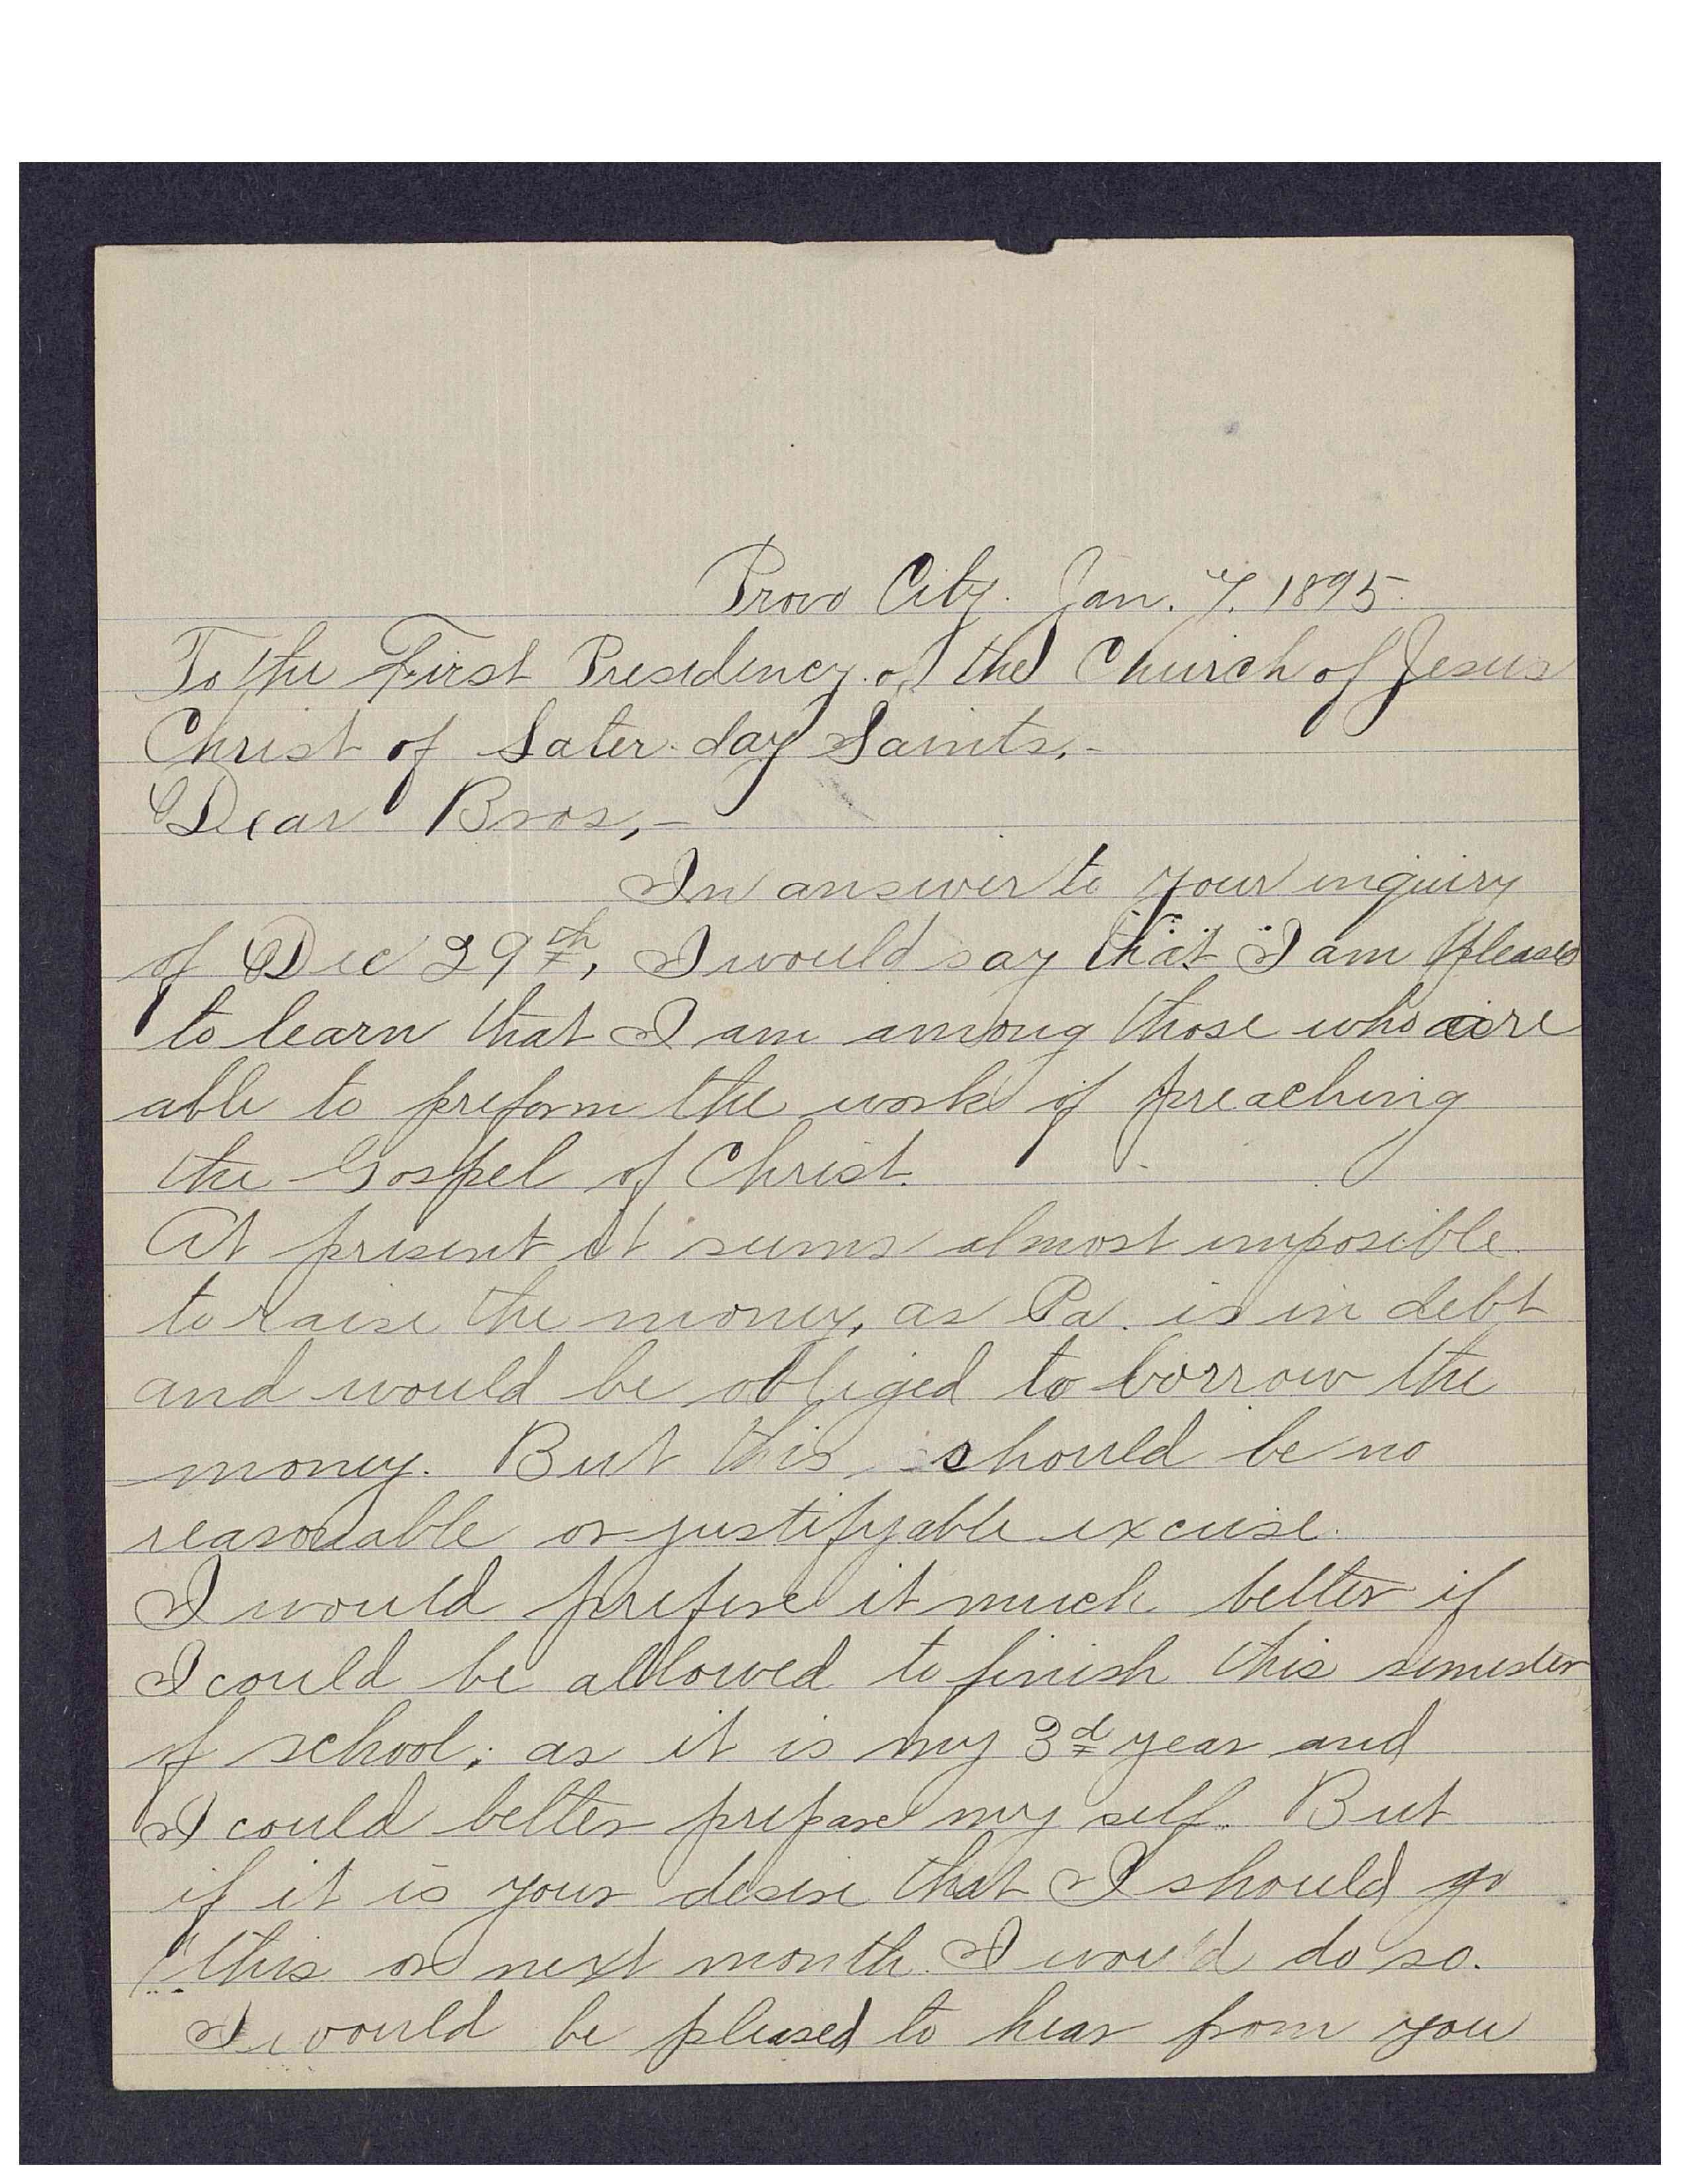 Provo City. Jan. 7. 1895.
To the First Presidency of the Church of Jesus
Christ of Later-day Saints,-
Dear Bros,-
In answer to your inquiry
of Dec 29th, I would say that I am pleased
to learn that I am among those who are
able to preform the work of preaching
the Gospel of Christ.
At present it seems almost imposible
to raise the money, as Pa. is in debt
and would be obliged to borrow the
money. But this should be no
reasonable or justifyable excuse.
I would prefere it much better if
I could be allowed to finish this semester
of school; as it is my 3d year and
I could better prepare my self. But
if it is your desire that I should go
this or next month I would do so.
I would be pleased to hear from you